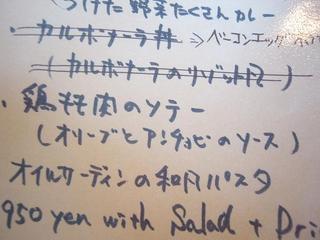 つけた野菜たくさんカレー
・カルボナーラ丼 ⇒ベーコンエッグ
(カルボナーラのリゾット風)
・鶏モモ肉のソテー
(オリーブとアンチョビのソース)
オイルサーディンの和風パスタ
950 yen with Salad + Dri